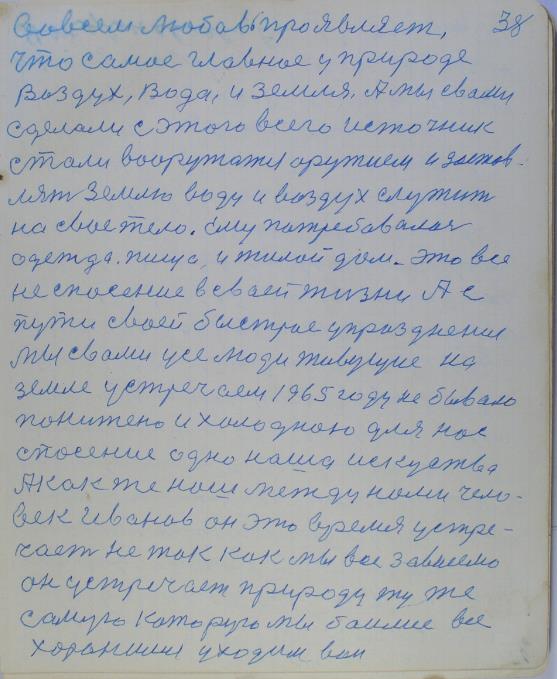 совсем любовь проявляет, 38
что самое главное у природе
воздух, вода, и земля. А мы свами
сделали с этого всего источник
стали вооружатся оружием и застав-
лят землю воду и воздух служит
на свое тело. Ему потребавалас
одежда. пища, и жилой дом. Это все
не спосение в своей жизни А с
пути своей быстрое упразднение
мы свами усе люди живущие на
земле устречаем 1965 году не бывало
понижено и холодною для нас
спосение одно наша искуства
А как же наш между нами чело-
век Иванов он это время устре-
чает не так как мы все зависемо
он устречает природу ту же
самую которую мы боимся все
хоронимся уходим вон